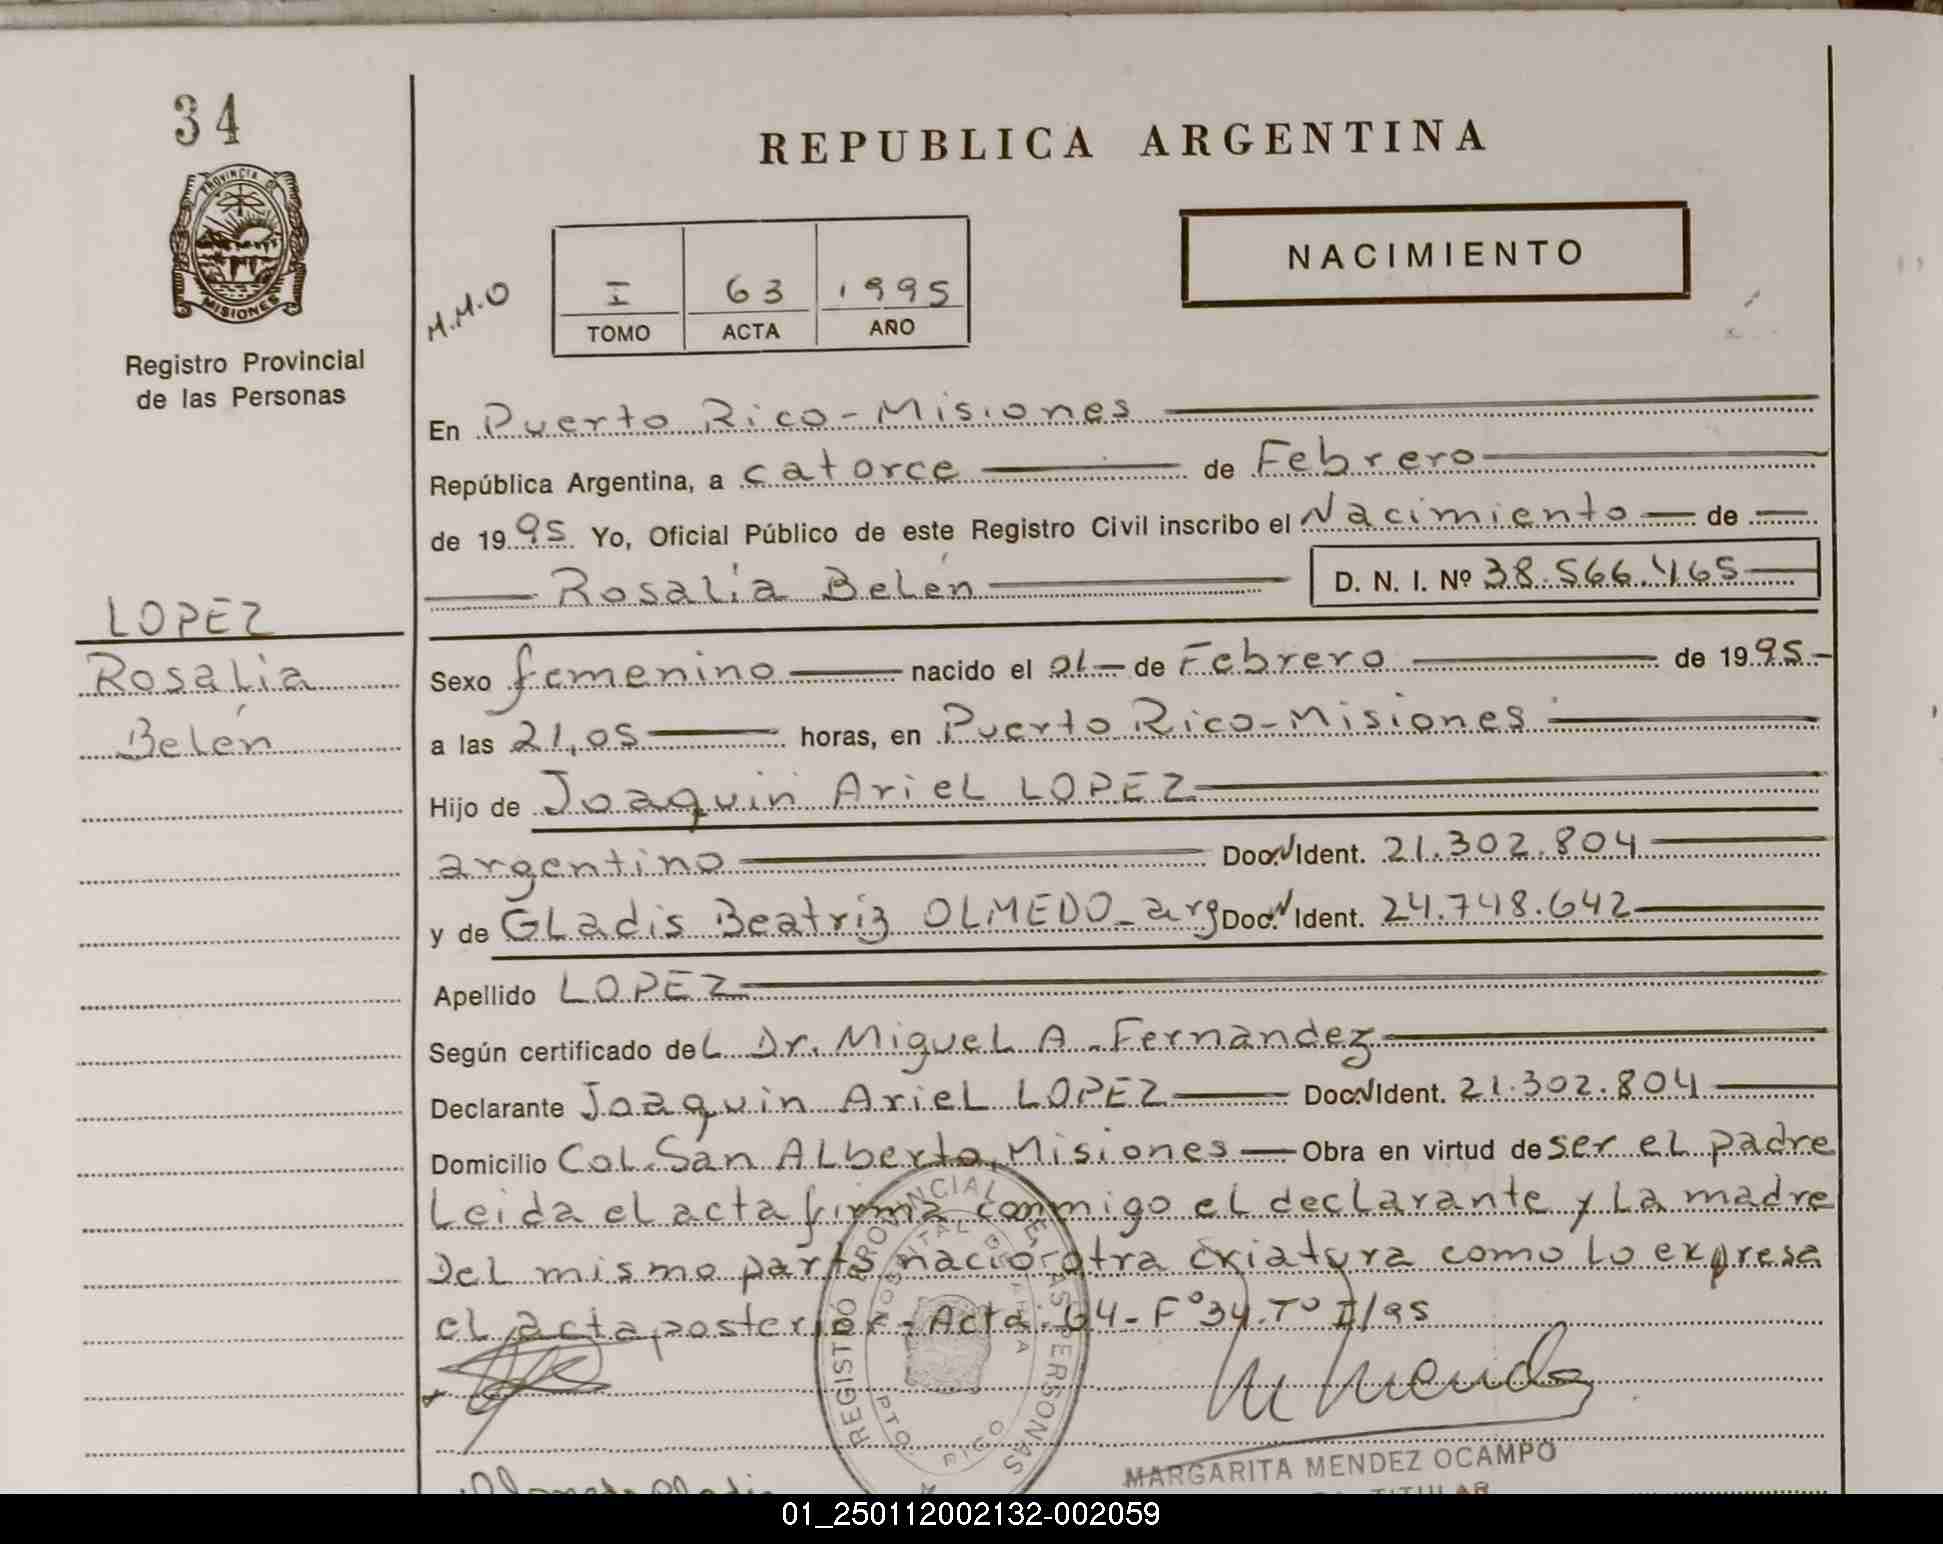 34
PROVINCIA DE
MISIONES
Registro Provincial
de las Personas
REPUBLICA ARGENTINA
NACIMIENTO
M.M.O
I 63 1995
TOMO ACTA AÑO
En Puerto Rico-Misiones
República Argentina, a catorce de Febrero
de 1995 Yo, Oficial Público de este Registro Civil inscribo el Nacimiento de
Rosalía Belén D. N. I. Nº 38.566.465
LOPEZ
Rosalía
Belén
Sexo femenino nacido el 01 de Febrero de 1995.-
a las 21,05 horas, en Puerto Rico-Misiones
Hijo de Joaquin Ariel LOPEZ
argentino Doc. Ident. 21.302.804
y de Gladis Beatriz OLMEDO-arg Doc. Ident. 24.748.642
Apellido LOPEZ
Según certificado del Dr. Miguel A. Fernandez
Declarante Joaquin Ariel LOPEZ Doc. Ident. 21.302.804
Domicilio Col. San Alberto, Misiones Obra en virtud de ser el padre
Leida el acta firma conmigo el declarante y la madre
Del mismo parto nacio otra criatura como lo expresa
el acta posterior - Acta: 64 - Fº34. Tº I/95
REGISTRO PROVINCIAL DE LAS PERSONAS
HOSPITAL
PTO. RICO
MARGARITA MENDEZ OCAMPO
TITULAR
01_250112002132-002059